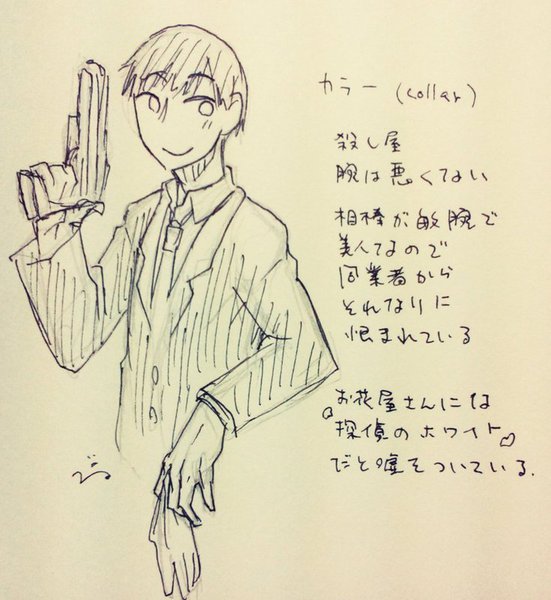 カラー (collar)
殺し屋
腕は悪くない
相棒が敏腕で
美人なので
同業者から
それなりに
恨まれている
お花屋さんには
『探偵のホワイト』
だと嘘をついている.